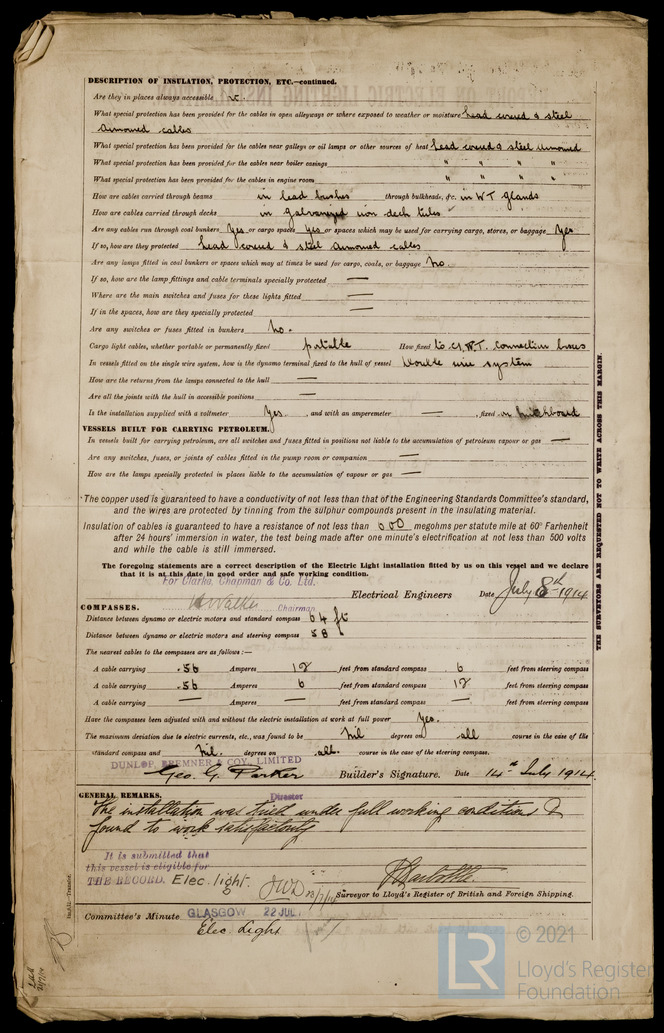 DESCRIPTION OF INSULATION, PROTECTION, ETC.—continued.
Are they in places always accessible
What special protection has been provided for the cables in open alleyways or where exposed to weather or moisture Lead covered & steel
armoured cables
What special protection has been provided for the cables near galleys or oil lamps or other sources of heat Lead covered & steel armoured
What special protection has been provided for the cables near boiler casings " " " "
What special protection has been provided for the cables in engine room " " " "
How are cables carried through beams in lead bushes through bulkheads, &c. in W T glands
How are cables carried through decks in galvanized iron deck tubes
Are any cables run through coal bunkers Yes or cargo spaces Yes or spaces which may be used for carrying cargo, stores, or baggage Yes
If so, how are they protected Lead covered & steel armoured cables
Are any lamps fitted in coal bunkers or spaces which may at times be used for cargo, coals, or baggage No.
If so, how are the lamp fittings and cable terminals specially protected —
Where are the main switches and fuses for these lights fitted —
If in the spaces, how are they specially protected —
Are any switches or fuses fitted in bunkers No.
Cargo light cables, whether portable or permanently fixed portable How fixed to C.I. W.T. connection boxes
In vessels fitted on the single wire system, how is the dynamo terminal fixed to the hull of vessel Double wire system
How are the returns from the lamps connected to the hull —
Are all the joints with the hull in accessible positions —
Is the installation supplied with a voltmeter Yes. , and with an amperemeter — , fixed on switchboard
VESSELS BUILT FOR CARRYING PETROLEUM.
In vessels built for carrying petroleum, are all switches and fuses fitted in positions not liable to the accumulation of petroleum vapour or gas —
Are any switches, fuses, or joints of cables fitted in the pump room or companion —
How are the lamps specially protected in places liable to the accumulation of vapour or gas —
The copper used is guaranteed to have a conductivity of not less than that of the Engineering Standards Committee's standard,
and the wires are protected by tinning from the sulphur compounds present in the insulating material.
Insulation of cables is guaranteed to have a resistance of not less than 600 megohms per statute mile at 60° Farhenheit
after 24 hours' immersion in water, the test being made after one minute's electrification at not less than 500 volts
and while the cable is still immersed.
The foregoing statements are a correct description of the Electric Light installation fitted by us on this vessel and we declare
that it is at this date in good order and safe working condition.
For Clarke, Chapman & Co. Ltd.
Walker Chairman Electrical Engineers Date July 8th 1914
COMPASSES.
Distance between dynamo or electric motors and standard compass 64 ft
Distance between dynamo or electric motors and steering compass 58 "
The nearest cables to the compasses are as follows:—
A cable carrying .56 Amperes 12 feet from standard compass 6 feet from steering compass
A cable carrying .56 Amperes 6 feet from standard compass 12 feet from steering compass
A cable carrying — Amperes — feet from standard compass — feet from steering compass
Have the compasses been adjusted with and without the electric installation at work at full power Yes.
The maximum deviation due to electric currents, etc., was found to be Nil degrees on all course in the case of the
standard compass and Nil. degrees on all. course in the case of the steering compass.
DUNLOP, BREMNER & COY. LIMITED
Geo. G. Parker Builder's Signature. Date 14th July 1914.
Director
GENERAL REMARKS.
The installation was tried under full working conditions &
found to work satisfactorily
It is submitted that
this vessel is eligible for
THE RECORD. Elec. light.
Surveyor to Lloyd's Register of British and Foreign Shipping.
Committee's Minute GLASGOW 22 JUL
Elec. Light
THE SURVEYORS ARE REQUESTED NOT TO WRITE ACROSS THIS MARGIN.
© 2021
LR
Lloyd's Register
Foundation